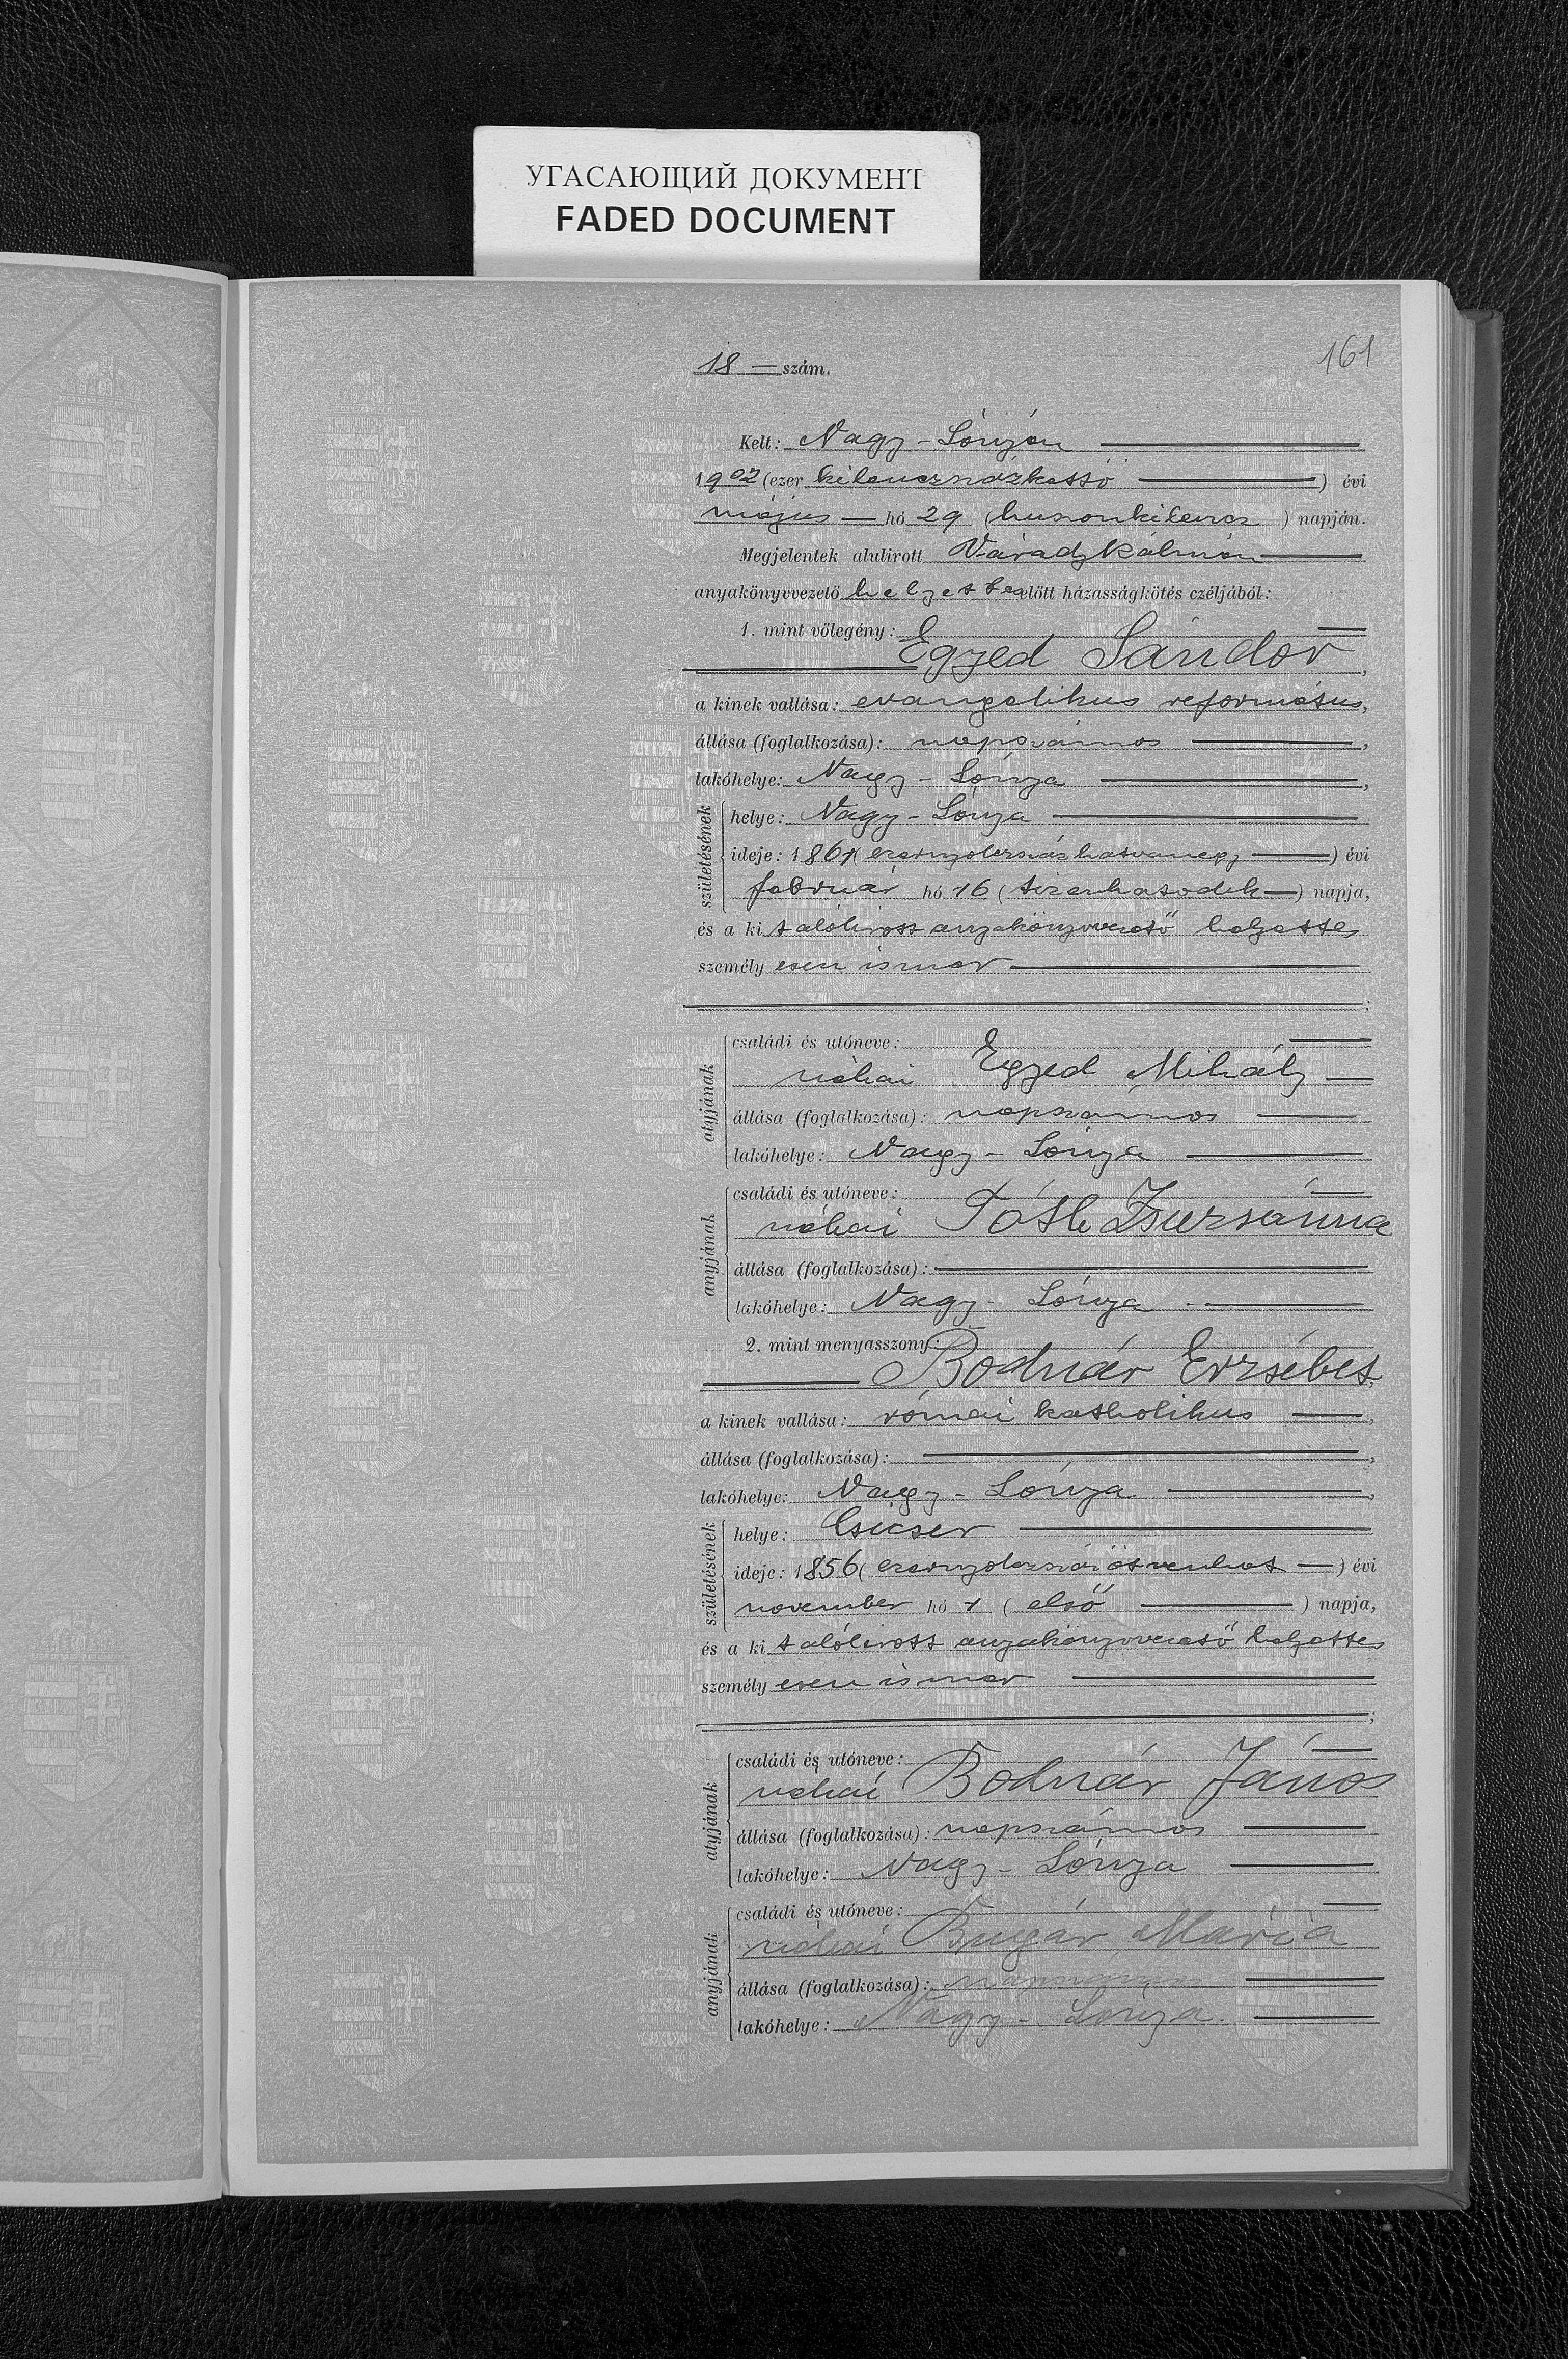 УГАСАЮЩИЙ ДОКУМЕНТ
FADED DOCUMENT
161
18 — szám.
Kelt: Nagy-Lónyán
1902 (ezer kilenczszázkettő) évi
május hó 29 (huszonkilencz) napján.
Megjelentek alulirott Várady Kálmán
anyakönyvvezető helyettes előtt házasságkötés czéljából:
1. mint vőlegény:
Egyed Sándor,
a kinek vallása: evangelikus református,
állása (foglalkozása): napszámos,
lakóhelye: Nagy-Lónya,
születésének
helye: Nagy-Lónya
ideje: 1861 (ezernyolczszázhatvanegy) évi
február hó 16 (tizenhatodik) napja,
és a ki t alólirott anyakönyvvezető helyettes
személy esen ismer
;
atyjának
családi és utóneve:
néhai Egyed Mihály
állása (foglalkozása): napszámos
lakóhelye: Nagy-Lónya
anyjának
családi és utóneve:
néhai Tóth Zsuzsánna
állása (foglalkozása):
lakóhelye: Nagy-Lónya
2. mint menyasszony:
Bodnár Erzsébet,
a kinek vallása: római katholikus,
állása (foglalkozása):,
lakóhelye: Nagy-Lónya,
születésének
helye: Csicser
ideje: 1856 (ezernyolczszázötvenhat) évi
november hó 1 (első) napja,
és a ki t alólirott anyakönyvvezető helyettes
személy esen ismer
;
atyjának
családi és utóneve:
néhai Bodnár János
állása (foglalkozása): napszámos
lakóhelye: Nagy-Lónya
anyjának
családi és utóneve:
néhai Bugár Mária
állása (foglalkozása): napszámos
lakóhelye: Nagy-Lónya.